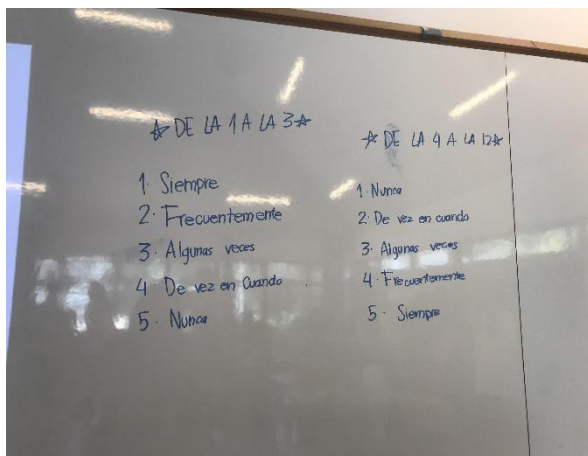 ☆ DE LA 1 A LA 3 ☆
1. Siempre
2. Frecuentemente
3. Algunas veces
4. De vez en Cuando
5. Nunca
☆ DE LA 4 A LA 12 ☆
1. Nunca
2. De vez en cuando
3. Algunas veces
4. Frecuentemente
5. Siempre